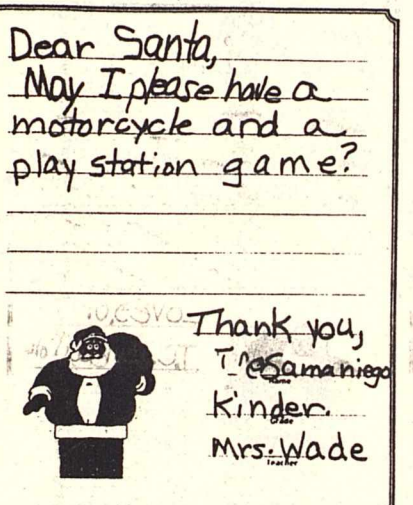 Dear Santa,
May I please have a
motorcycle and a
play station game?
Thank you,
Samaniego
Name
Kinder.
Grade
Mrs. Wade
Teacher